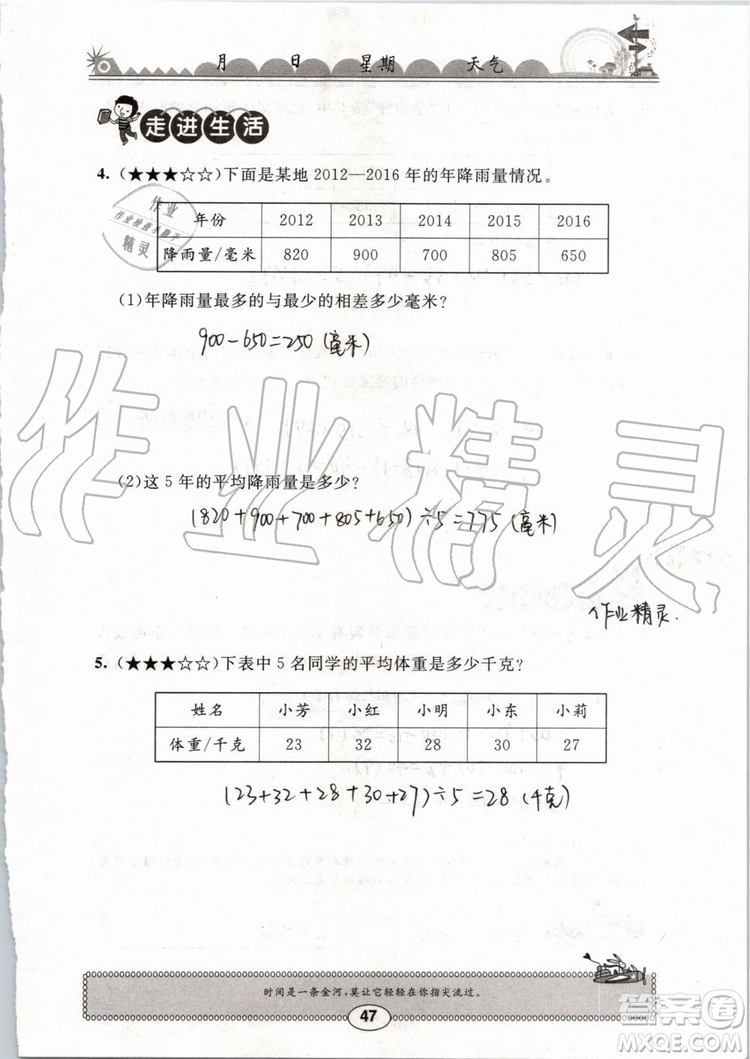 月 日 星期 天气
走进生活
4.(★★★☆☆)下面是某地 2012—2016 年的年降雨量情况。
年份 2012 2013 2014 2015 2016
降雨量/毫米 820 900 700 805 650
作业
作业检查小帮手
精灵
(1)年降雨量最多的与最少的相差多少毫米?
900-650=250(毫米)
作业精灵
(2)这 5 年的平均降雨量是多少?
(820+900+700+805+650)÷5=775(毫米)
作业精灵.
5.(★★★☆☆)下表中 5 名同学的平均体重是多少千克?
姓名 小芳 小红 小明 小东 小莉
体重/千克 23 32 28 30 27
(23+32+28+30+27)÷5=28(千克)
时间是一条金河,莫让它轻轻在你指尖流过。
47
答案圈
MXQE.COM